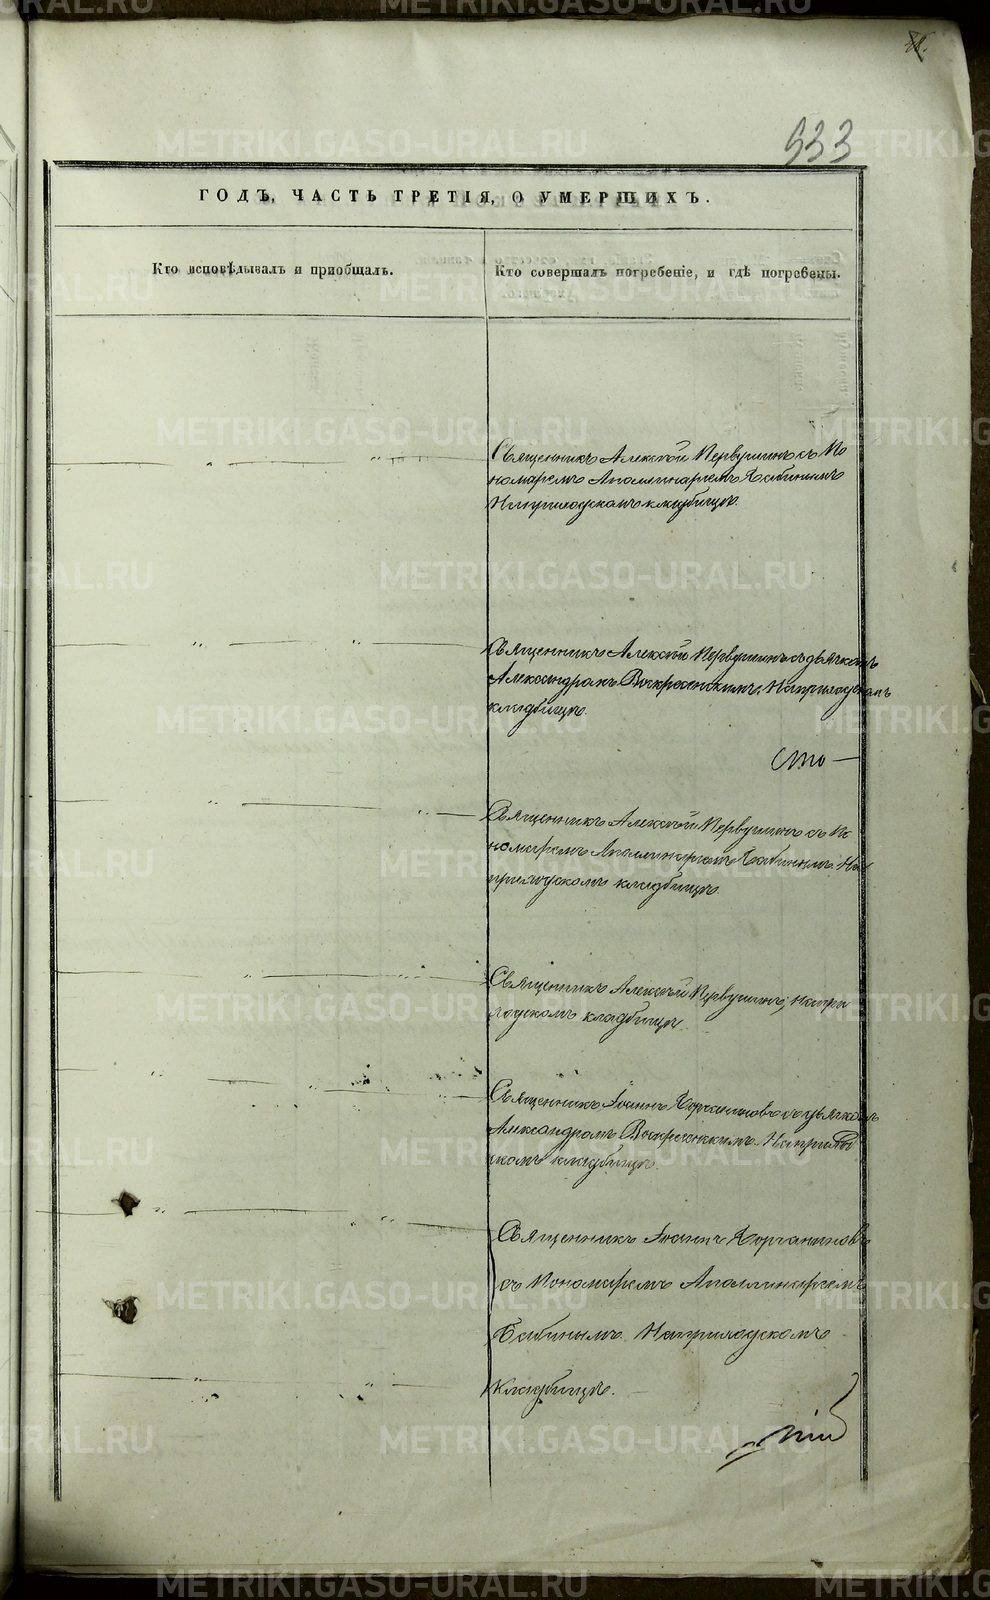 533
ГОДЪ, ЧАСТЬ ТРЕТІЯ, О УМЕРШИХЪ.
Кто исповѣдывалъ и приобщалъ.
Кто совершалъ погребеніе, и гдѣ погребены.
Священникъ Алексѣй Первушинъ съ По
номаремъ Аполлинаріемъ Бабинымъ
На приходскомъ кладбищѣ.
Священникъ Алексѣй Первушинъ съ дьячкомъ
Александромъ Воскресенскимъ, На приходскомъ
кладбищѣ.
Сто
Священникъ Алексѣй Первушинъ съ По
номаремъ Аполлинаріемъ Бабинымъ На
приходскомъ кладбищѣ
Священникъ Алексѣй Первушинъ, На при
ходскомъ кладбищѣ.
Священникъ Іоаннъ съ дьячкомъ
Александромъ Воскресенскимъ На приход
скомъ кладбищѣ.
Священникъ Іоаннъ
съ Пономаремъ Аполлинаріемъ
Бабинымъ На приходскомъ
кладбищѣ.
METRIKI.GASO-URAL.RU